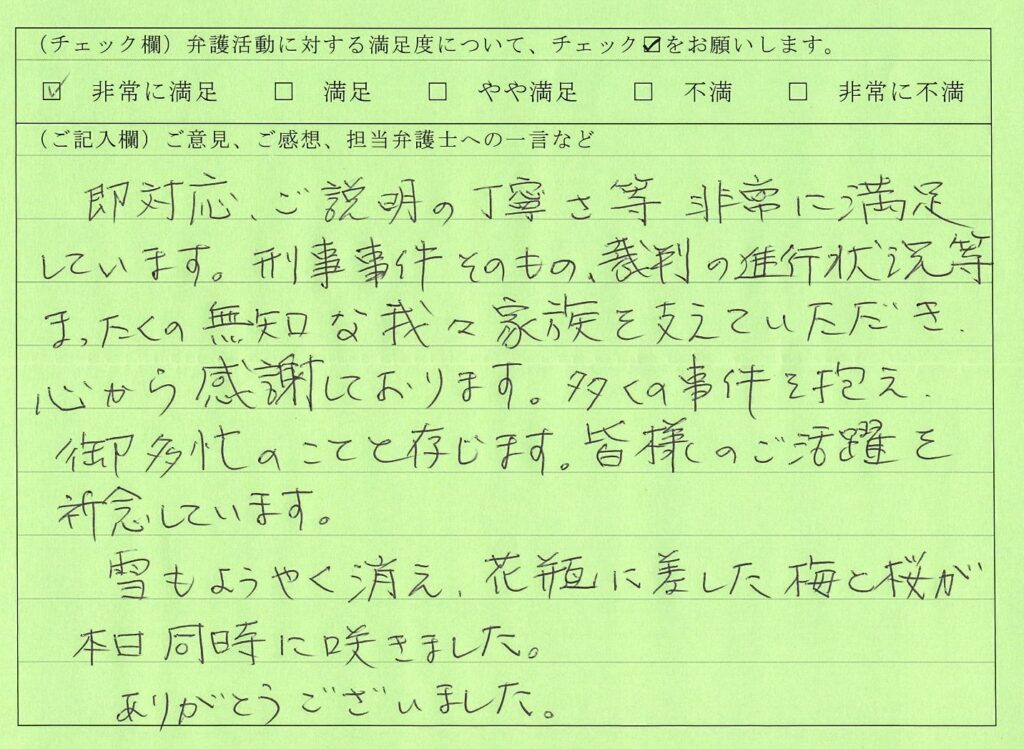 （チェック欄）弁護活動に対する満足度について、チェック☑をお願いします。
☑ 非常に満足 □ 満足 □ やや満足 □ 不満 □ 非常に不満
（ご記入欄）ご意見、ご感想、担当弁護士への一言など
即対応、ご説明の丁寧さ等 非常に満足
しています。刑事事件そのもの、裁判の進行状況等
まったくの無知な我々家族を支えていただき、
心から感謝しております。多くの事件を抱え、
御多忙のことと存じます。皆様のご活躍を
祈念しています。
雪もようやく消え、花瓶に差した梅と桜が
本日同時に咲きました。
ありがとうございました。